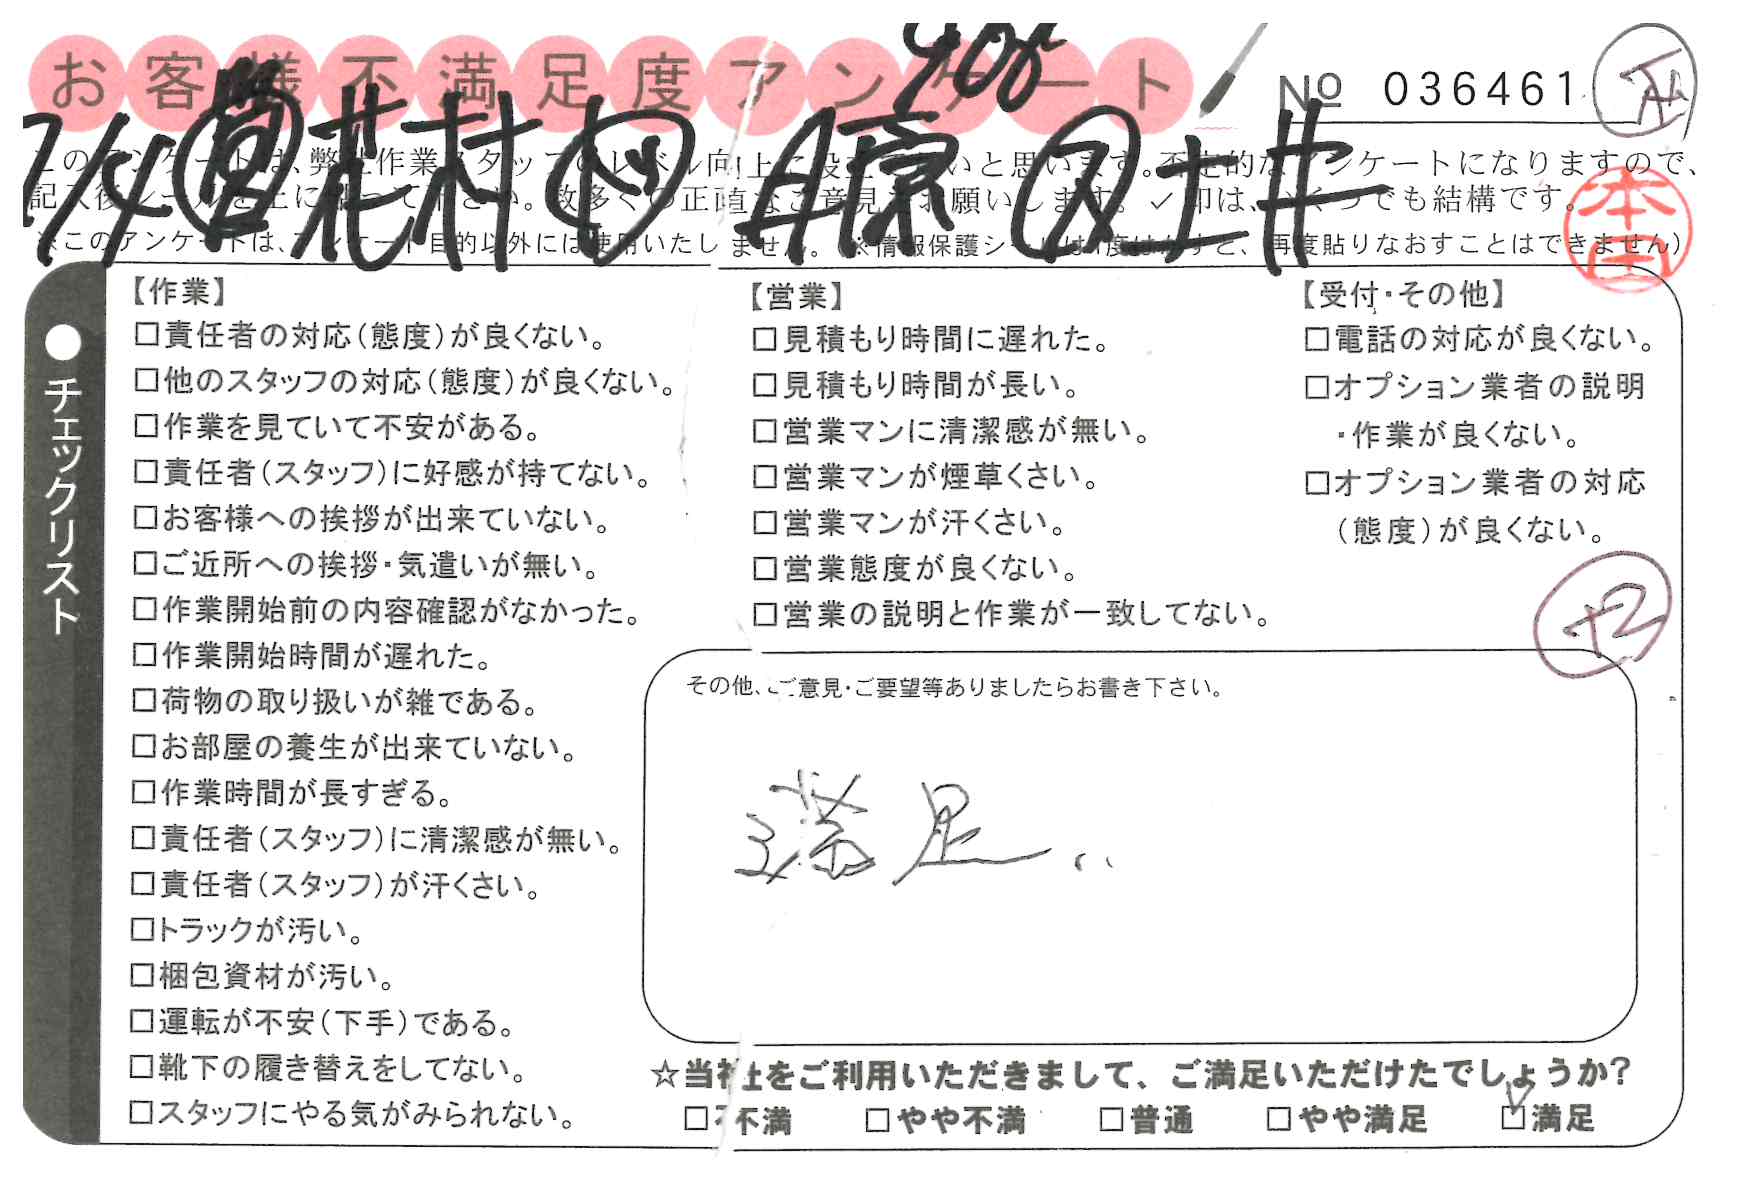 お客様不満足度アンケート
408
No 036461
7/4 営 花村 作 A原 又 土井
このアンケートは、弊社作業スタッフのレベル向上に役立てたいと思います。不定的なアンケートになりますので、
記入後シールを上に貼って下さい。数多くの正直なご意見をお願いします。✓印は、いくつでも結構です。
※このアンケートは、アンケート目的以外には使用いたしません。(※情報保護シールは1度はがすと、再度貼りなおすことはできません)
本田
●チェックリスト
【作業】
□責任者の対応(態度)が良くない。
□他のスタッフの対応(態度)が良くない。
□作業を見ていて不安がある。
□責任者(スタッフ)に好感が持てない。
□お客様への挨拶が出来ていない。
□ご近所への挨拶・気遣いが無い。
□作業開始前の内容確認がなかった。
□作業開始時間が遅れた。
□荷物の取り扱いが雑である。
□お部屋の養生が出来ていない。
□作業時間が長すぎる。
□責任者(スタッフ)に清潔感が無い。
□責任者(スタッフ)が汗くさい。
□トラックが汚い。
□梱包資材が汚い。
□運転が不安(下手)である。
□靴下の履き替えをしてない。
□スタッフにやる気がみられない。
【営業】
□見積もり時間に遅れた。
□見積もり時間が長い。
□営業マンに清潔感が無い。
□営業マンが煙草くさい。
□営業マンが汗くさい。
□営業態度が良くない。
□営業の説明と作業が一致してない。
【受付・その他】
□電話の対応が良くない。
□オプション業者の説明
・作業が良くない。
□オプション業者の対応
(態度)が良くない。
+2
その他、ご意見・ご要望等ありましたらお書き下さい。
満足..
☆当社をご利用いただきまして、ご満足いただけたでしょうか?
□不満 □やや不満 □普通 □やや満足 ☑満足